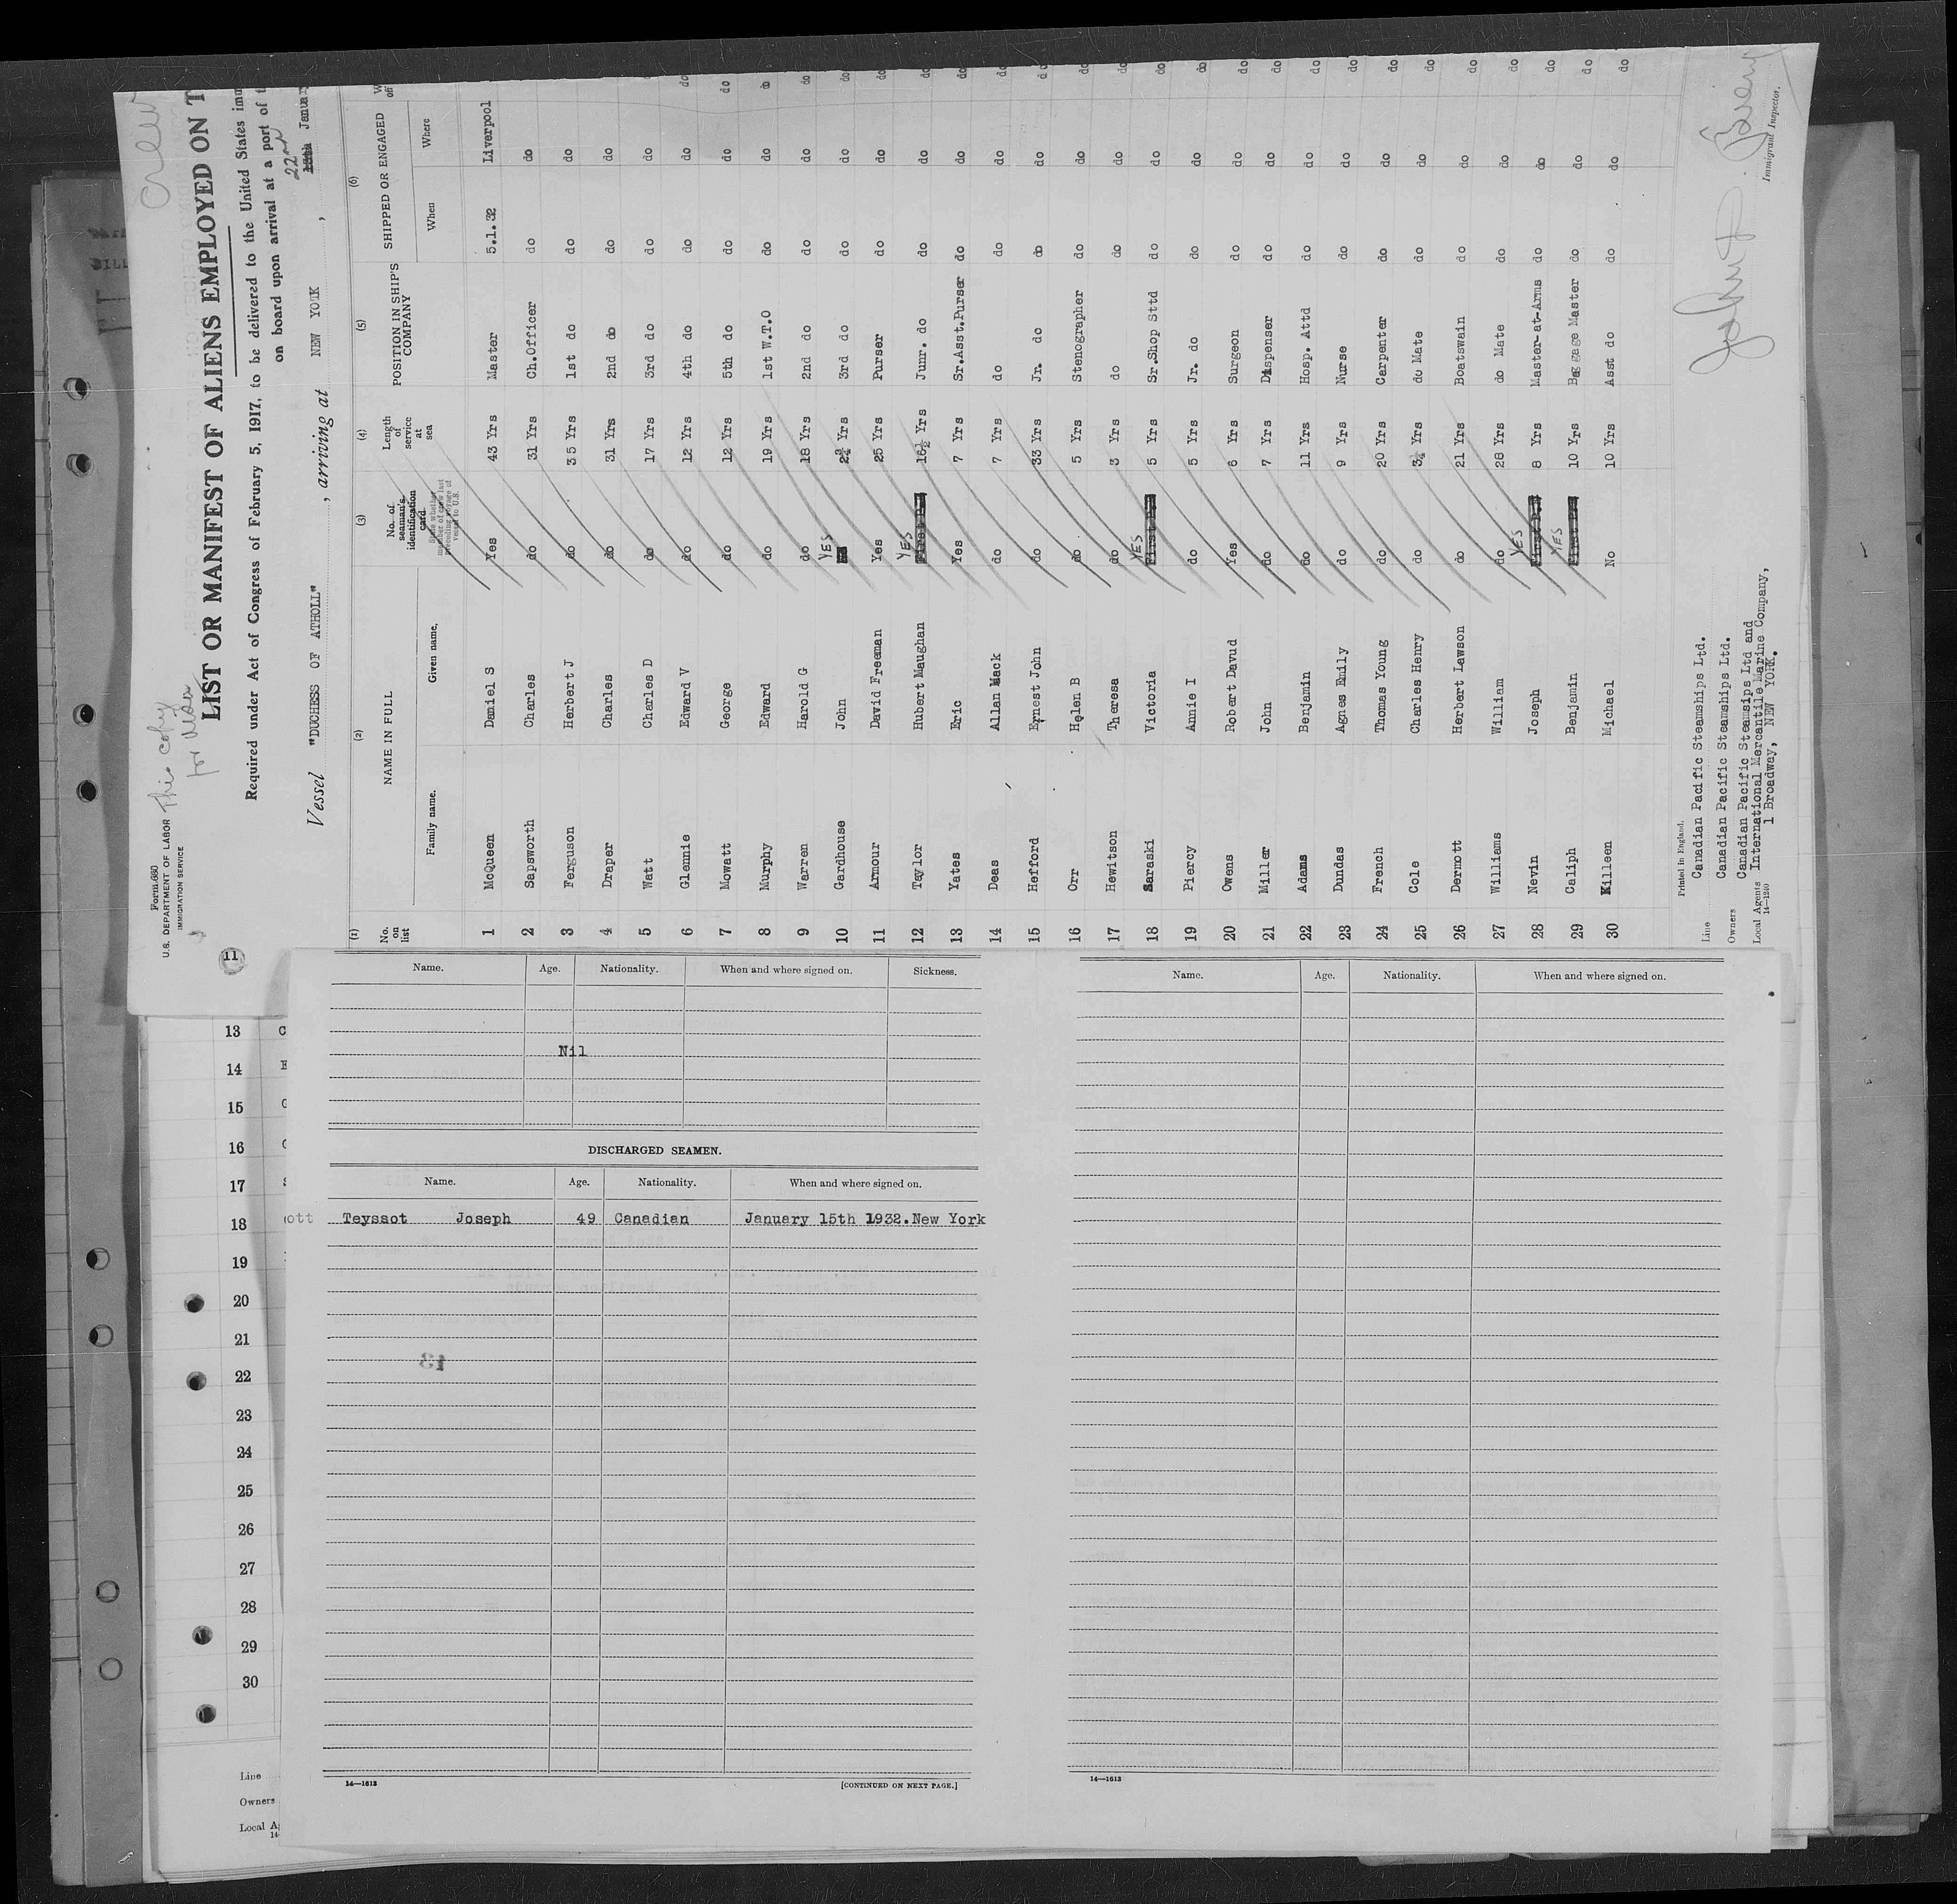 Crew
Form 680
U. S. DEPARTMENT OF LABOR
IMMIGRATION SERVICE
This copy
for
11
LIST OR MANIFEST OF ALIENS EMPLOYED ON T
Required under Act of Congress of February 5, 1917, to be delivered to the United States imm
on board upon arrival at a port of t
Vessel "DUCHESS OF ATHOLL" , arriving at NEW YORK , 22nd January
(1) (2) (3) (4) (5) (6)
No. on list NAME IN FULL Family name. Given name. No. of seaman's identification card. State whether member of crew last preceding voyage of vessel to U.S. Length of service at sea POSITION IN SHIP'S COMPANY SHIPPED OR ENGAGED When Where
1 McQueen Daniel S Yes 43 Yrs Master 5.1.32 Liverpool
2 Sapsworth Charles do 31 Yrs Ch.Officer do do
3 Ferguson Herbert J do 35 Yrs 1st do do do
4 Draper Charles do 31 Yrs 2nd do do do
5 Watt Charles D do 17 Yrs 3rd do do do
6 Glennie Edward V do 12 Yrs 4th do do do do
7 Mowatt George do 12 Yrs 5th do do do do
8 Murphy Edward do 19 Yrs 1st W.T.O do do do
9 Warren Harold G do 18 Yrs 2nd do do do do
10 Gardhouse John YES 2¾ Yrs 3rd do do do do
11 Armour David Freeman Yes 25 Yrs Purser do do do
12 Taylor Hubert Maughan YES 16½ Yrs Junr. do do do do
13 Yates Eric Yes 7 Yrs Sr.Asst.Purser do do do
14 Deas Allan Mack do 7 Yrs do do do do
15 Hefford Ernest John do 33 Yrs Jr. do do do do
16 Orr Helen B do 5 Yrs Stenographer do do do
17 Hewitson Theresa do 3 Yrs do do do do
18 Saraski Victoria YES 5 Yrs Sr.Shop Sttd do do do
19 Piercy Annie I do 5 Yrs Jr. do do do do
20 Owens Robert Davud Yes 6 Yrs Surgeon do do do
21 Miller John do 7 Yrs Dispenser do do do
22 Adams Benjamin do 11 Yrs Hosp. Attd do do do
23 Dundas Agnes Emily do 9 Yrs Nurse do do do
24 French Thomas Young do 20 Yrs Carpenter do do do
25 Cole Charles Henry do 3¼ Yrs do Mate do do do
26 Dermott Herbert Lawson do 21 Yrs Boatswain do do do
27 Williams William do 28 Yrs do Mate do do do
28 Nevin Joseph YES 8 Yrs Master-at-Arms do do do
29 Caliph Benjamin YES 10 Yrs Baggage Master do do do
30 Killeen Michael No 10 Yrs Asst do do do do
Printed in England.
Line Canadian Pacific Steamships Ltd.
Owners Canadian Pacific Steamships Ltd.
Canadian Pacific Steamsips Ltd and
Local Agents International Mercantile Marine Company,
14—1240 1 Broadway, NEW YORK.
John
Immigrant Inspector.
Name. Age. Nationality. When and where signed on. Sickness.
Nil
DISCHARGED SEAMEN.
Name. Age. Nationality. When and where signed on.
Teyssot Joseph 49 Canadian January 15th 1932.New York
14—1613 [CONTINUED ON NEXT PAGE.]
Name. Age. Nationality. When and where signed on.
14—1613
13 C
14 E
15 G
16
17
18 ott
19
20
21
22
23
24
25
26
27
28
29
30
Line
Owners
Local A
14